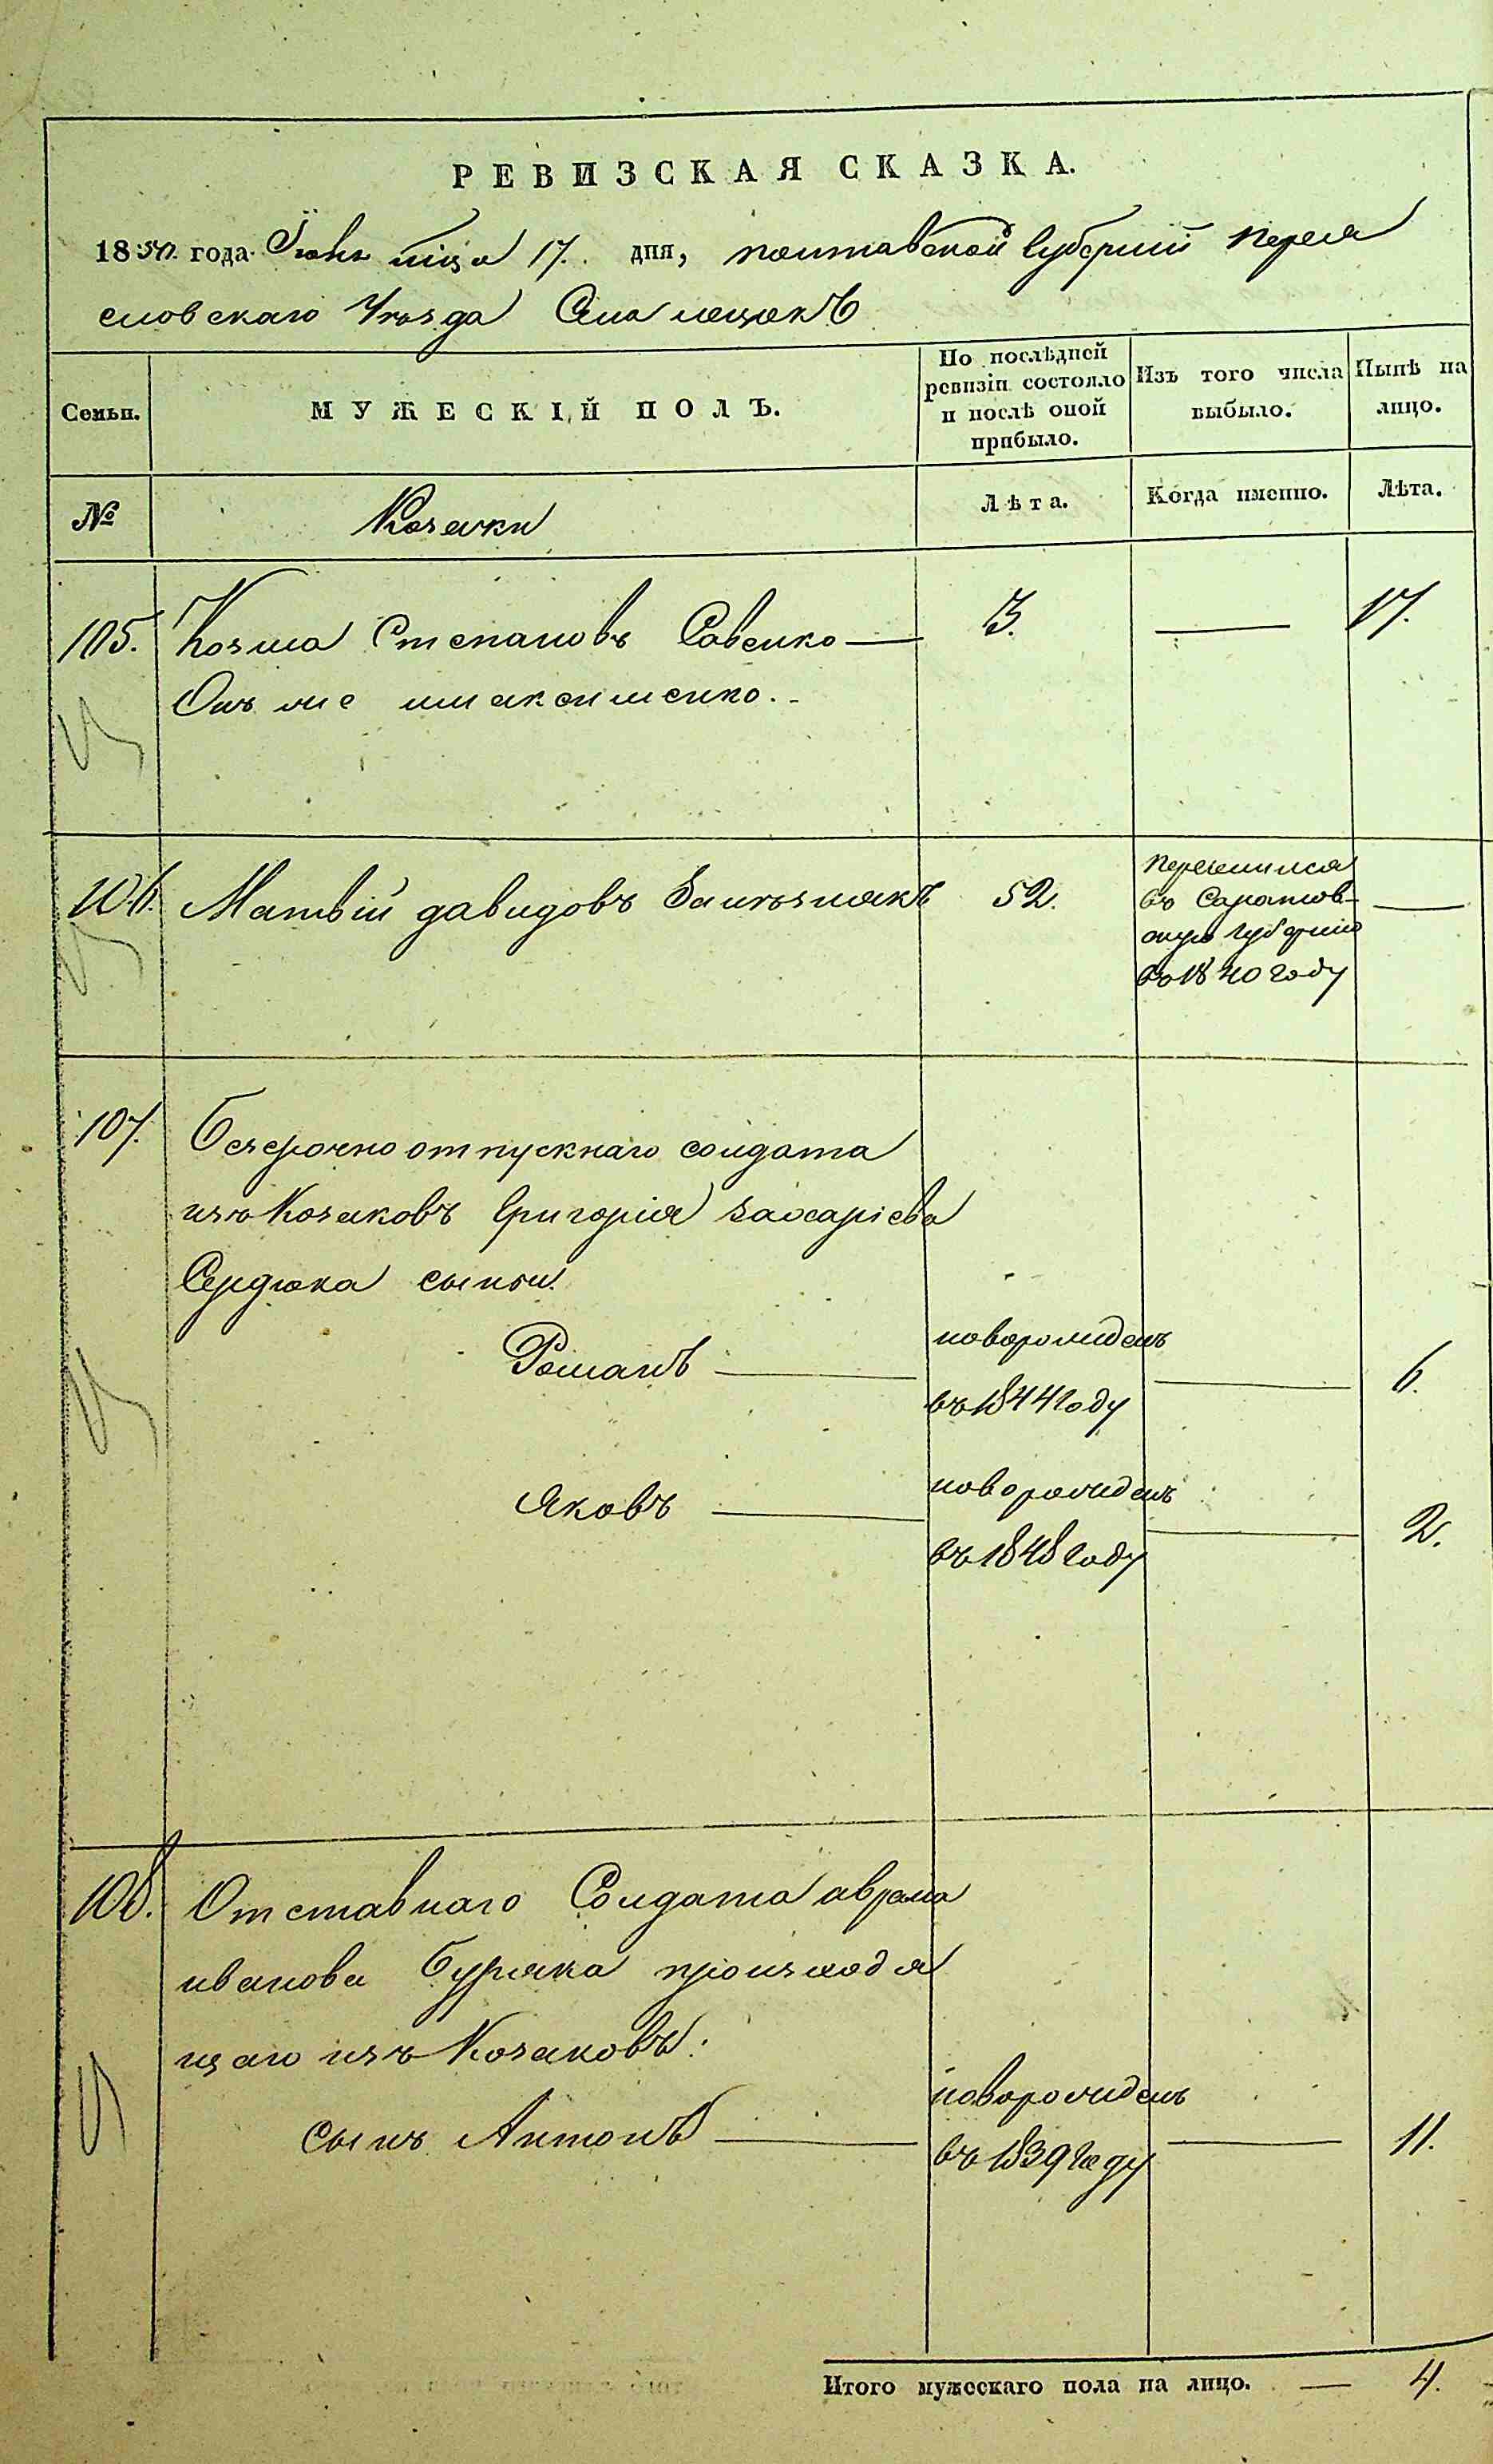 РЕВИЗСКАЯ СКАЗКА.
1850 года Июня м-ца 17. дня, полтавской Губернии Перея
словскаго Уѣзда Села
Семьи.
МУЖЕСКІЙ ПОЛЪ.
По послѣдней ревизіи состояло и послѣ оной прибыло.
Изъ того числа выбыло.
Нынѣ на лицо.
№
Козаки
Лѣта.
Когда именно.
Лѣта.
105. Козма Степановъ Савенко — 13. — 17.
Онъ же максименко.
106. Матвій давидовъ 52. —
переселился
въ Саратов-
скую губернію
въ 1840 году
107. Безсрочно отпускнаго солдата
изъ Козаковъ Григорія захаріева
Сердюка сыны
Романъ — новорожденъ
въ 1844 году — 6.
Яковъ — новорожденъ
въ 1848 году — 2.
108. Отставнаго Солдата аврама
иванова Буряка происходя
щаго изъ Козаковъ:
сынъ Антонъ — новорожденъ
въ 1839 году — 11.
Итого мужескаго пола на лицо. — 4.